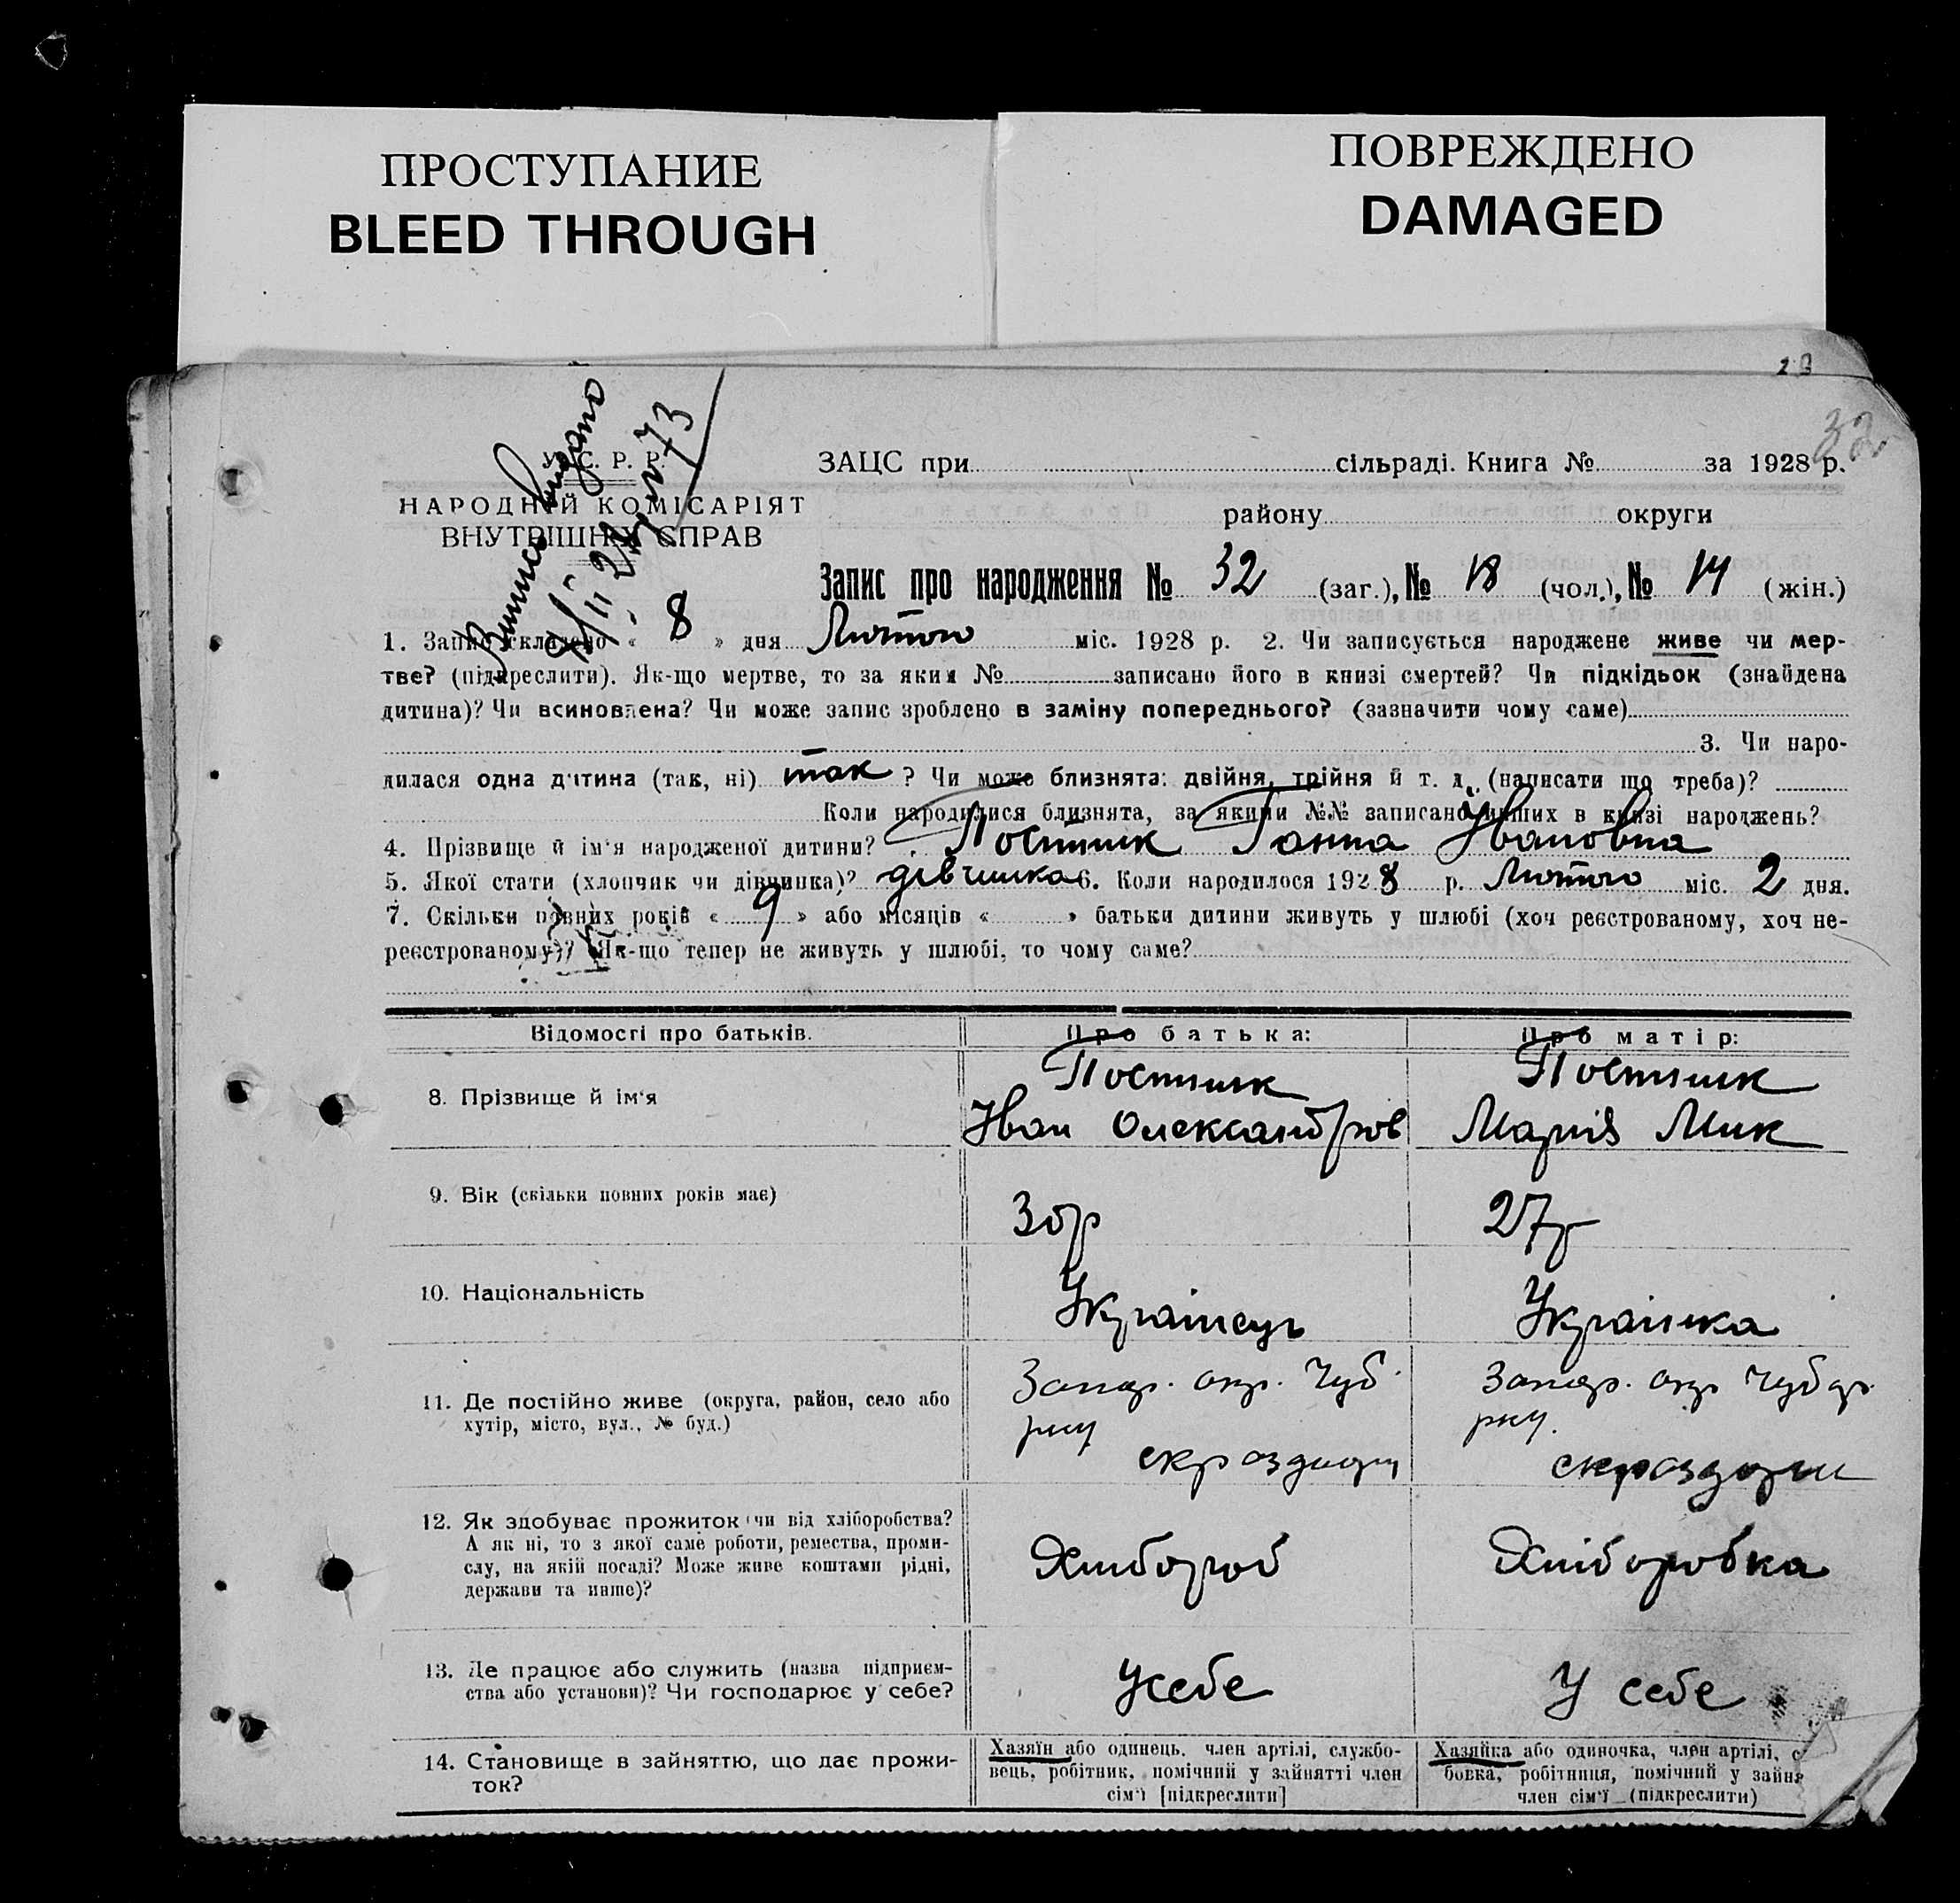 ПРОСТУПАНИЕ
BLEED THROUGH
ПОВРЕЖДЕНО
DAMAGED
32
Випись видано
№ 73
У. С. Р. Р.
НАРОДНІЙ КОМІСАРІЯТ
ВНУТРІШНІХ СПРАВ
ЗАЦС при сільраді. Книга № за 1928 р.
району округи
Запис про народження № 32 (заг.), № 18 (чол.), № 14 (жін.)
1. Запис складено « 8 » дня Лютого міс. 1928 р. 2. Чи записується народжене живе чи мер-
тве? (підкреслити). Як-що мертве, то за яким № записано його в книзі смертей? Чи підкідьок (знайдена
дитина)? Чи всиновлена? Чи може запис зроблено в заміну попереднього? (зазначити чому саме)
3. Чи наро-
дилася одна дитина (так, ні) так ? Чи може близнята: двійня, трійня й т. д. (написати що треба)?
Коли народилися близнята, за якими №№ записано инших в книзі народжень?
4. Прізвище й ім'я народженої дитини? Постник Ганна Івановна
5. Якої стати (хлопчик чи дівчинка)? дівчинка 6. Коли народилося 1928 р. Лютого міс. 2 дня.
7. Скільки повних років « 9 » або місяців « » батьки дитини живуть у шлюбі (хоч реєстрованому, хоч не-
реєстрованому)? Як-що тепер не живуть у шлюбі, то чому саме?
Відомості про батьків. Про батька: Про матір:
8. Прізвище й ім'я Постник Постник
Іван Олександров Марія Мик
9. Вік (скільки повних років має) 30р 27р
10. Національність Українець Українка
11. Де постійно живе (округа, район, село або
хутір, місто, вул., № буд.)
Запор. окр. Чуб.
Запор. окр Чубар.
рну
рну.
12. Як здобуває прожиток чи від хліборобства?
А як ні, то з якої саме роботи, ремества, проми-
слу, на якій посаді? Може живе коштами рідні,
держави та инше)?
Хлібороб Хліборобка
13. Де працює або служить (назва підприєм-
ства або установи)? Чи господарює у себе?
У себе У себе
14. Становище в зайняттю, що дає прожи-
ток?
Хазяїн або одинець, член артілі, службо-
вець, робітник, помічний у зайнятті член
сім'ї [підкреслити]
Хазяйка або одиночка, член артілі, с
бовка, робітниця, помічний у зайня
член сім'ї (підкреслити)